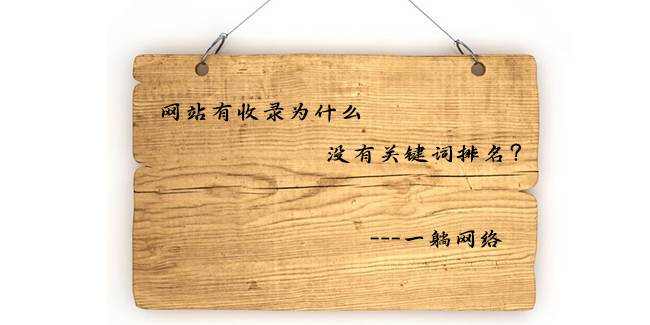 网站有收录为什么
没有关键词排名？
---一躺网络